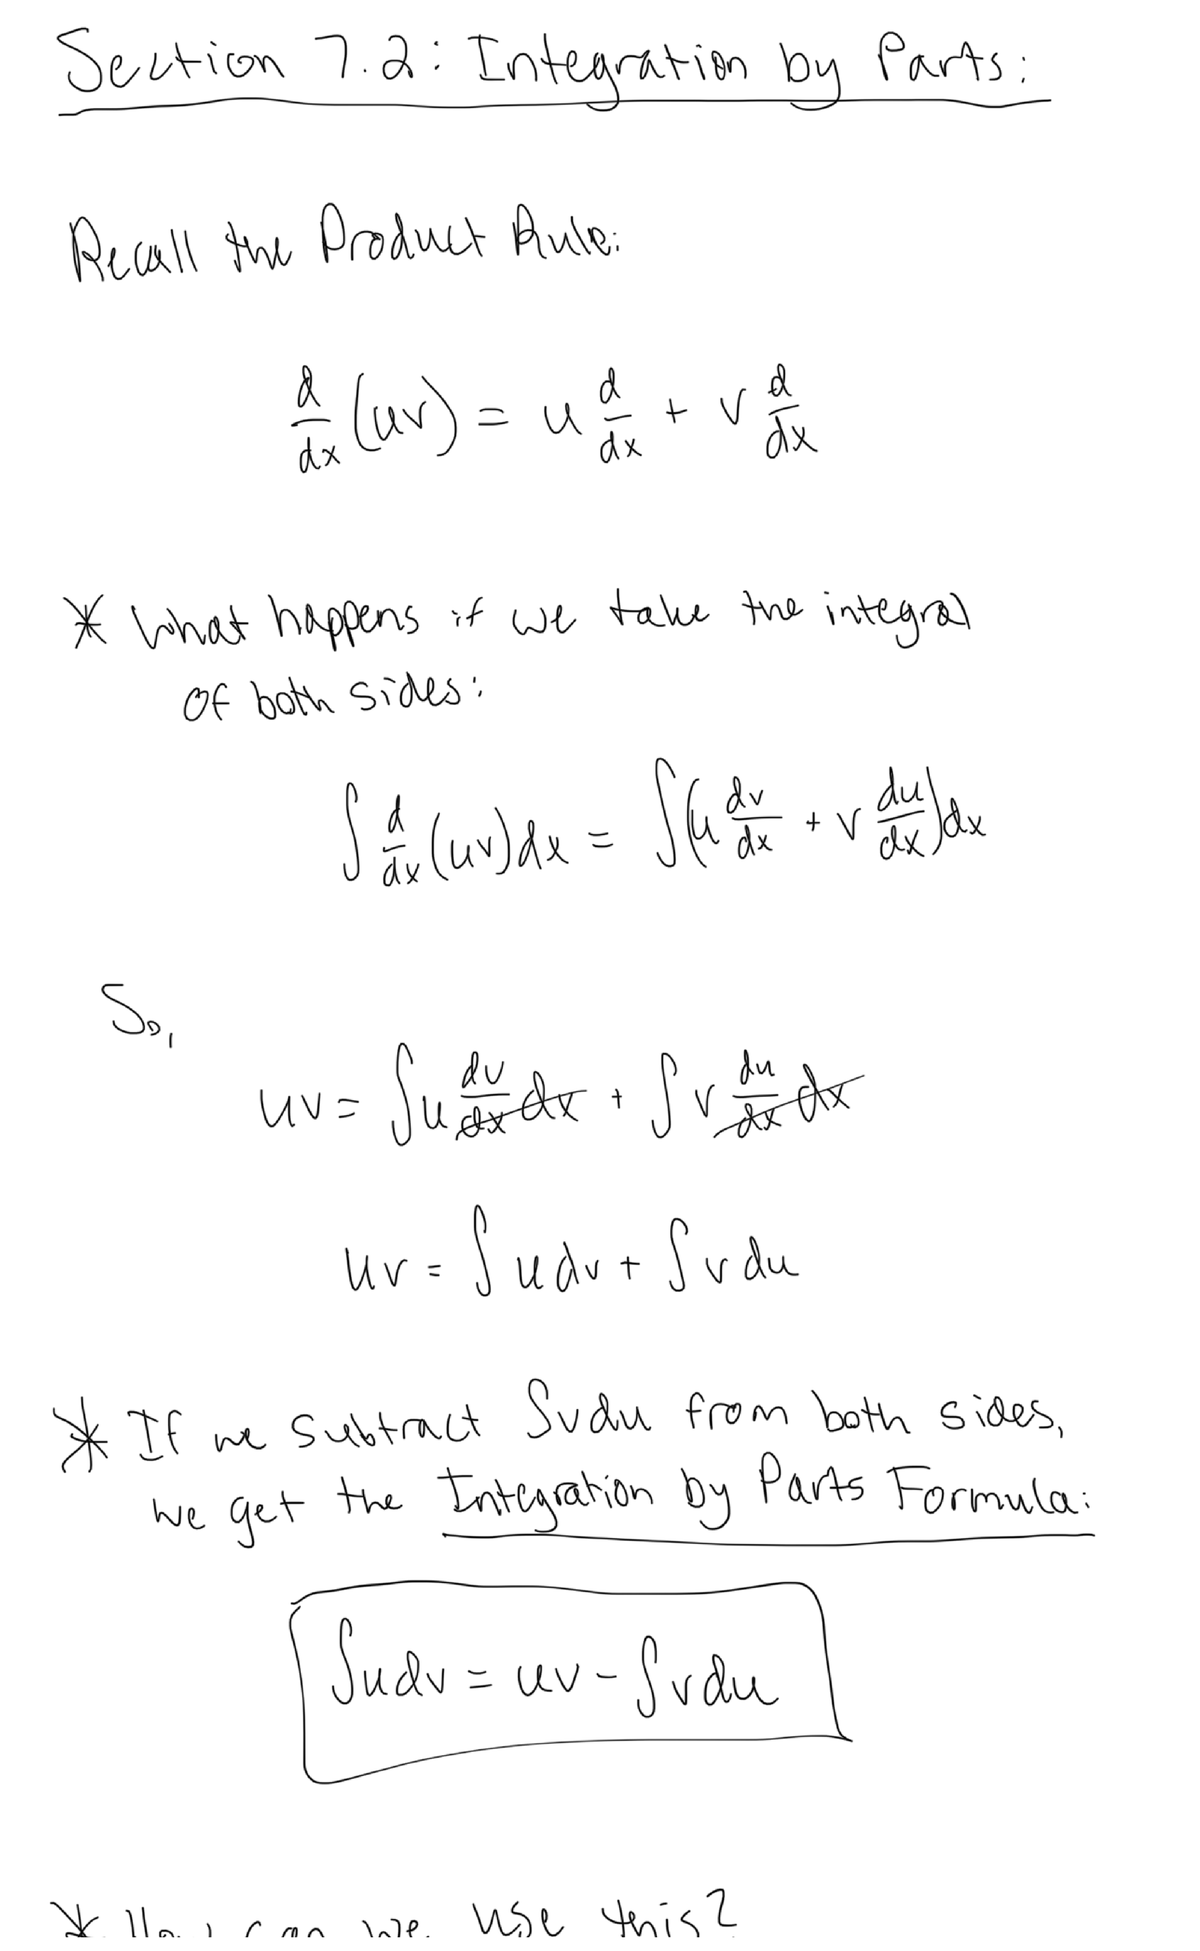 Section 7.2: Integration by Parts:
Recall the Product Rule:
d/dx (uv) = u d/dx + v d/dx
* What happens if we take the integral
of both sides:
∫ d/dx (uv) dx = ∫(u dv/dx + v du/dx) dx
So,
uv = ∫ u dv/dx dx + ∫ v du/dx dx
uv = ∫ u dv + ∫ v du
* If we subtract ∫vdu from both sides,
we get the Integration by Parts Formula:
∫udv = uv - ∫vdu
* How can we use this?